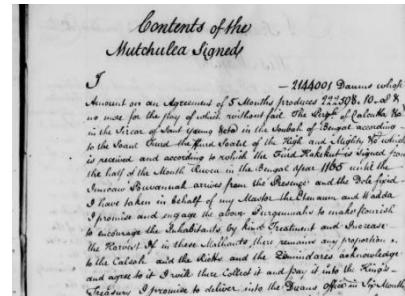 Contents of the
Mutchulca Signed
I — 2144001 Daums which
Amount on an Agreement of 5 Months produces 222,598. 10. &
no more for the pay of which without fail. The Perg.s of Calcutta &c
in the Sircar of Saut &ca in the Soubah of Bengal according
to the Soant Furd the Fard Soatel of the High and Mighty &c which
is received and according to which the Fard Hakekut is Signed from
the half of the Month in the Bengal Year 1165 until the
arrives from the Presence and the Dole fixed
I have taken in behalf of my Master the Etmaum and Wadda
I promise and engage the above Purgunnahs to make flourish
to encourage the Inhabitants by kind Treatment and Increase
the Harvest If in these Malhauts, there remains any proportion
to the Calsah and the Ricks and the Zemindares acknowledge
and agree to it I will there Collect it and pay it into the Kings
Treasury I promise to deliver into the Duans office in Six Months